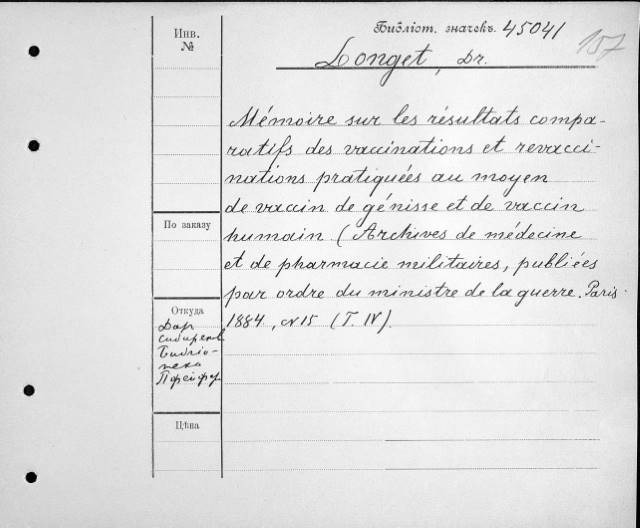 Инв.
№
Библіот. значекъ. 45041
157
Longet, Dr.
Mémoire sur les résultats compa-
ratifs des vaccinations et revacci-
nations pratiquées au moyen
de vaccin de génisse et de vaccin
humain (Archives de médecine
et de pharmacie militaires, publiées
par ordre du ministre de la guerre. Paris
1884, №15 (T. IV).
По заказу
Откуда
Дар
Библіо-
тека
Цѣна